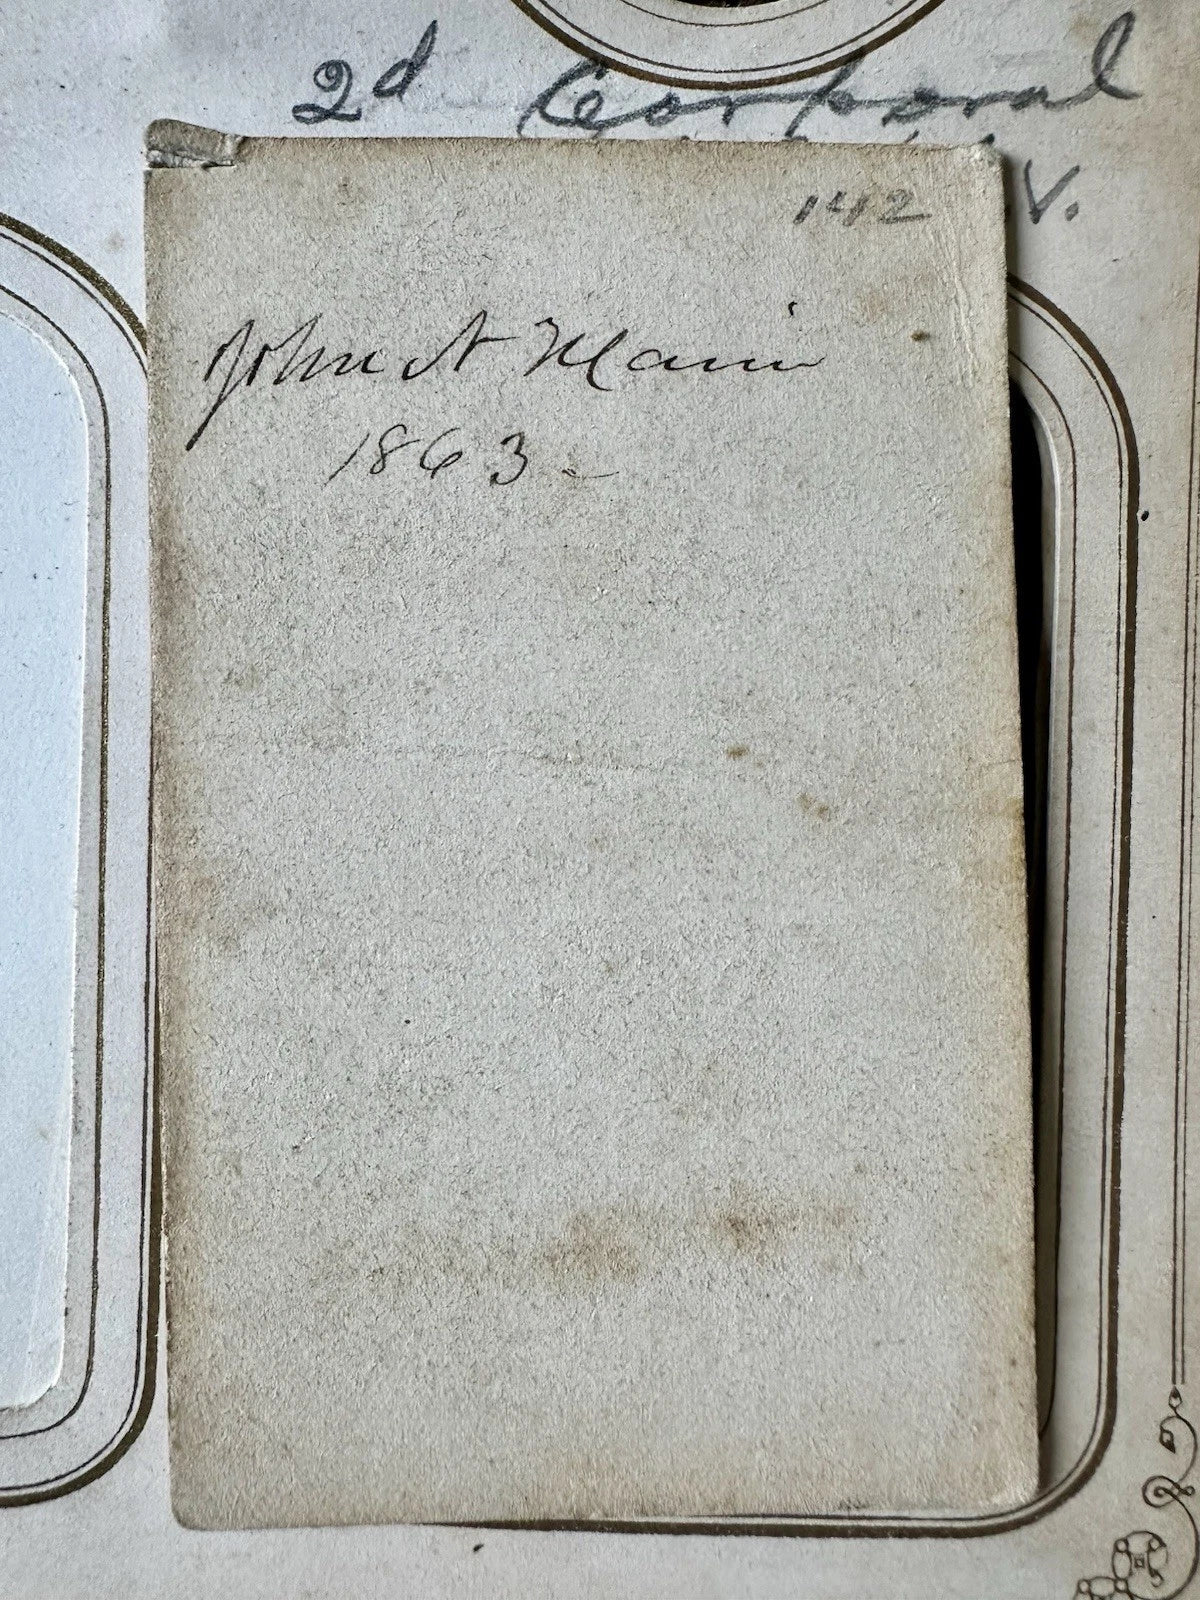 2d Corporal
V.
142
John A Main
1863 -